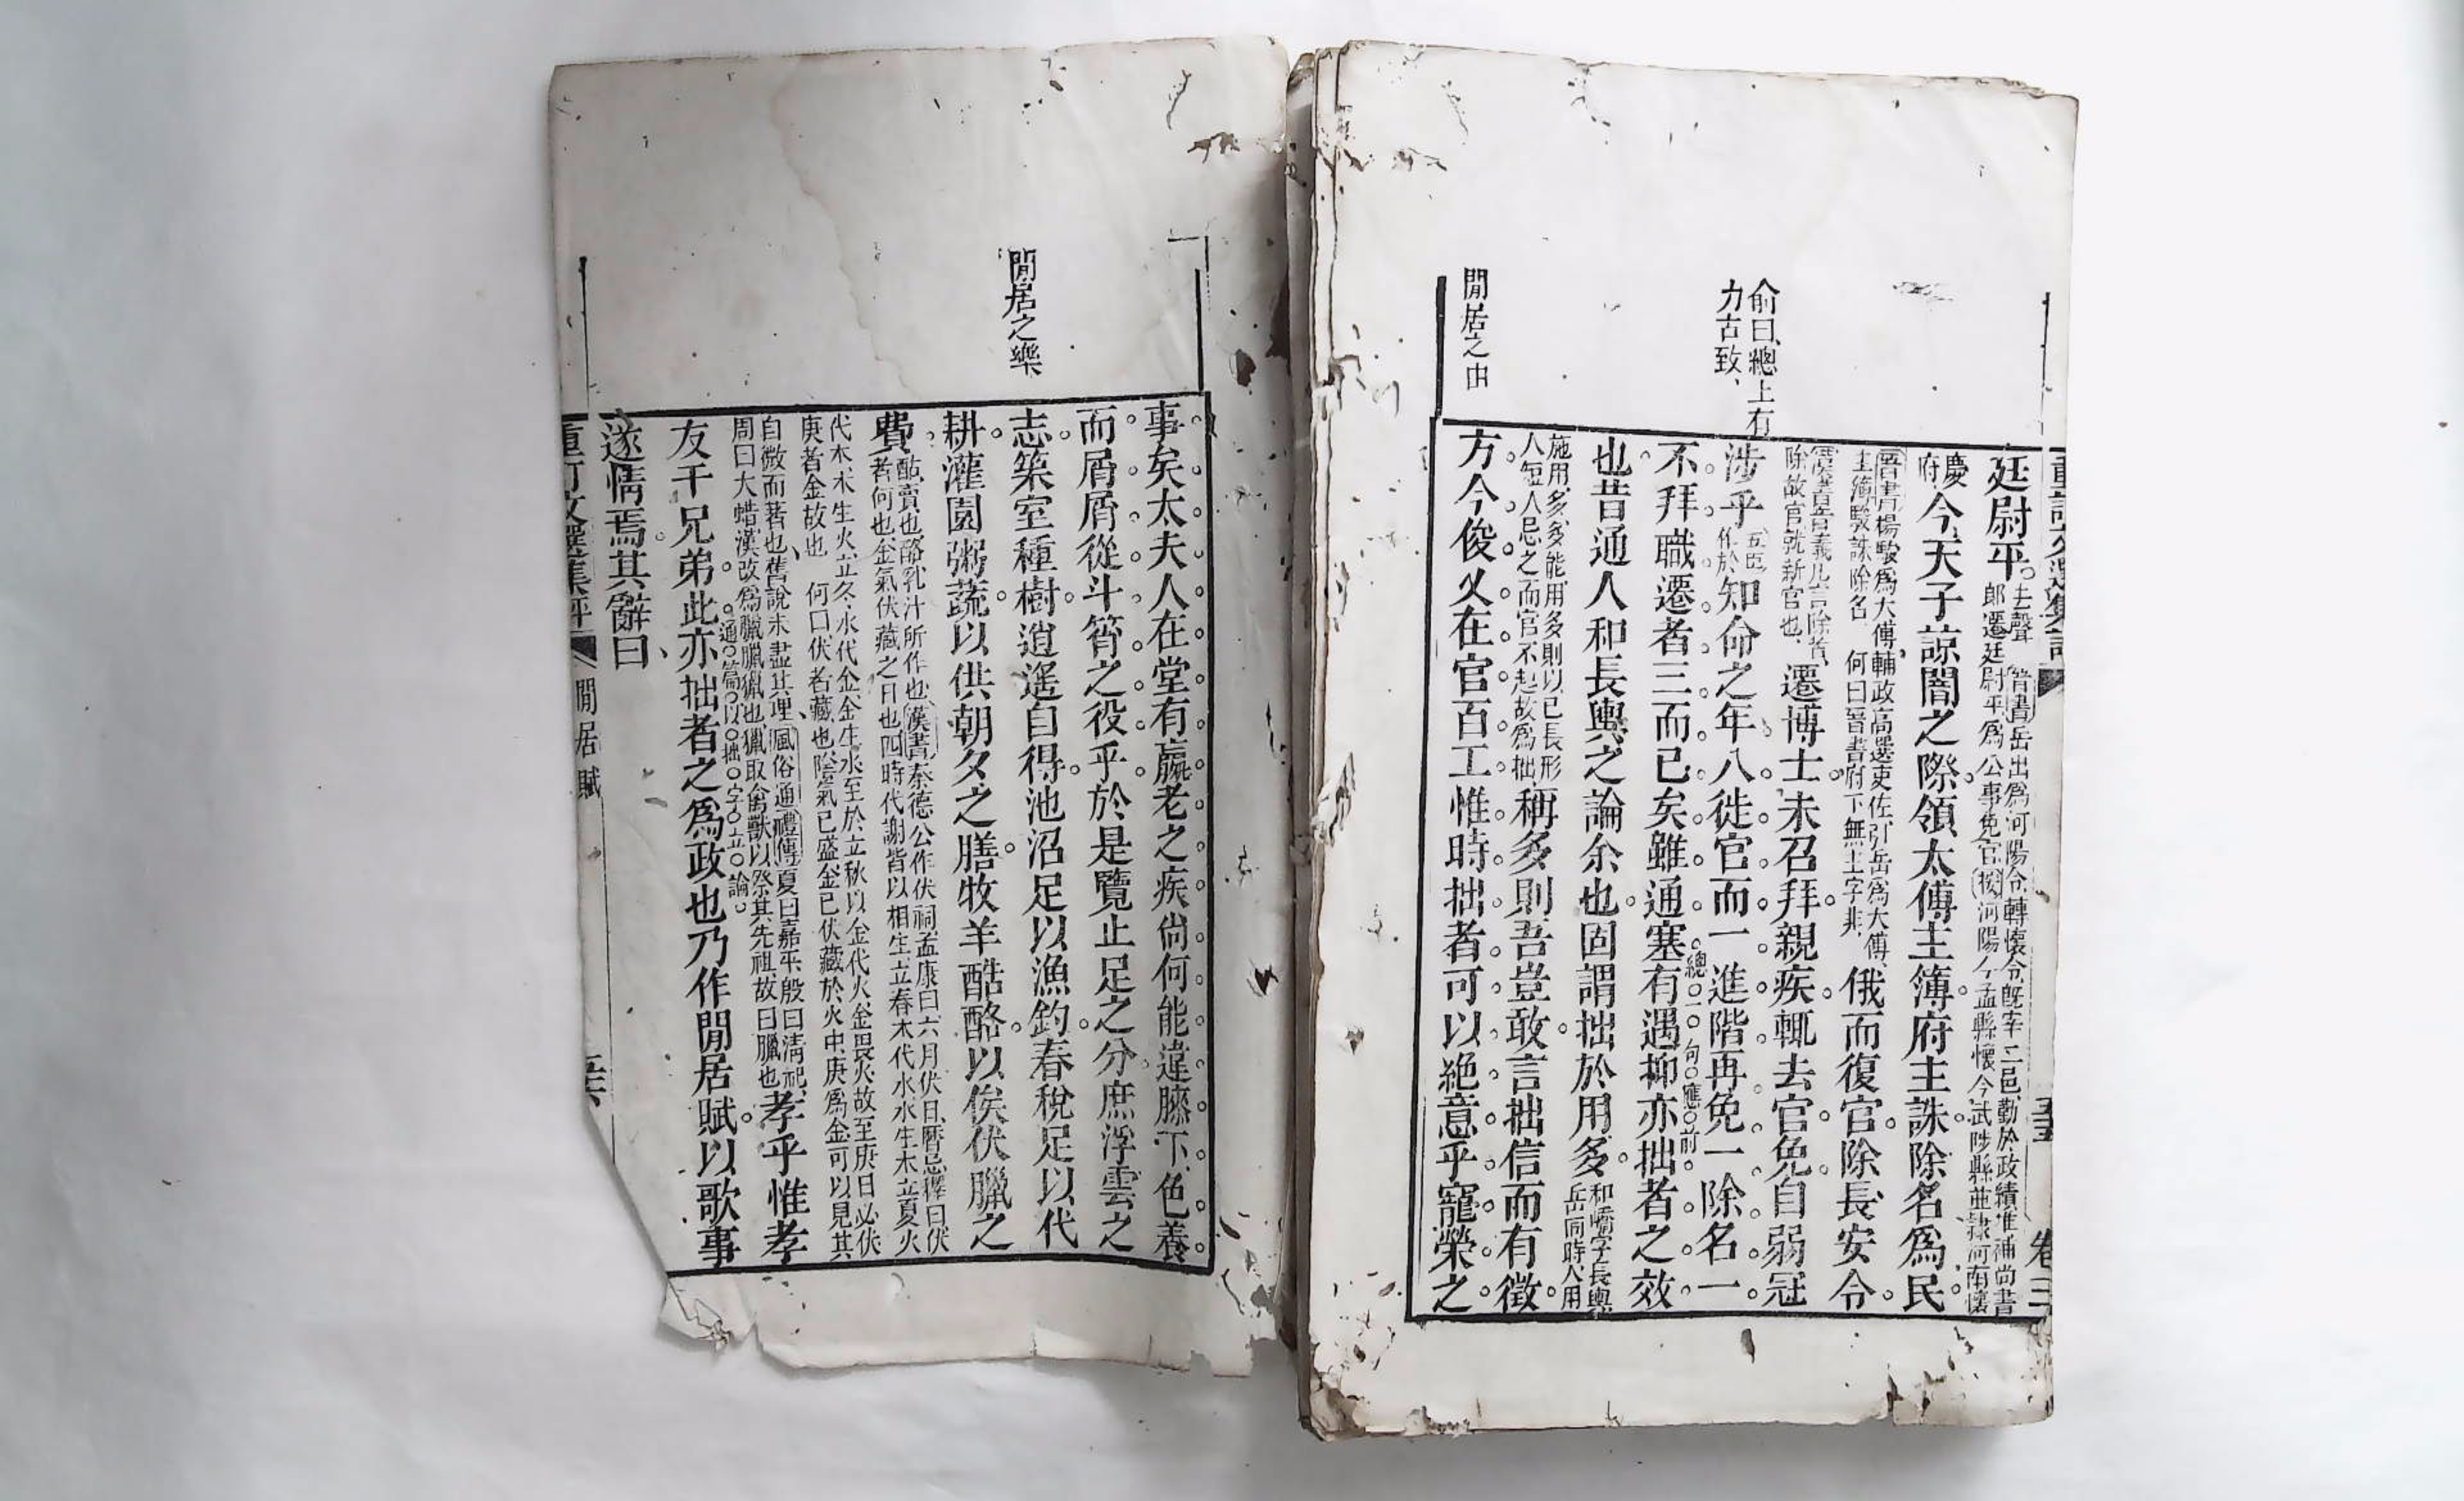 俞曰總上有
力古致
閒居之由
廷尉平去聲 晉書岳出爲河陽令轉懷令旣宰二邑勤於政績准補尚書
郎遷廷尉平爲公事免官按河陽今孟縣懷今武陟縣並隷河南懷
慶
府今天子諒闇之際領太傅主簿府主誅除名爲民
晉書楊駿爲大傅輔政高選吏佐引岳爲大傅
主簿駿誅除名 何曰晉書府下無主字非俄而復官除長安令
漢書音義凡言除者
除故官就新官也遷博士未召拜親疾輒去官免自弱冠
涉乎五臣
作於知命之年八徙官而一進階再免一除名一
不拜職遷者三而已矣雖通塞有遇抑亦拙者之效
總一句應前
也昔通人和長輿之論余也固謂拙於用多和嶠字長輿
岳同時人用
施用多多能用多則以已長形
人短人忌之而官不起故爲拙稱多則吾豈敢言拙信而有徵
方今俊乂在官百工惟時拙者可以絶意乎寵榮之
卷三
閒居之樂
事矣太夫人在堂有羸老之疾尙何能違膝下色養
而屑屑從斗筲之役乎於是覽止足之分庶浮雲之
志築室種樹逍遙自得池沼足以漁釣春稅足以代
耕灌園粥蔬以供朝夕之膳牧羊酤酪以俟伏臘之
費酤賣也酪乳汁所作也漢書秦德公作伏祠孟康曰六月伏日曆忌釋曰伏
者何也金氣伏藏之日也四時代謝皆以相生立春木代水水生木立夏火
代木木生火立冬水代金金生水至於立秋以金代火金畏火故至庚日必伏
庚者金故也 何曰伏者藏也陰氣已盛金已伏藏於火中庚爲金可以見其
自微而著也舊說未盡其理風俗通禮傳夏曰嘉平殷曰清祀
周曰大蜡漢改爲臘臘獵也獵取禽獸以祭其先祖故曰臘也孝乎惟孝
通篇以拙字立論
友于兄弟此亦拙者之爲政也乃作閒居賦以歌事
遂情焉其辭曰
重訂文選集評
閒居賦